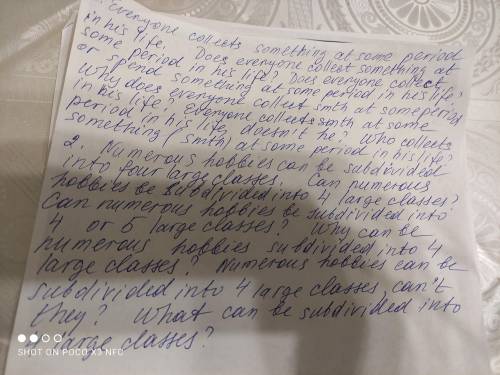 1. Everyone collects something at some period
in his life.
some period Does everyone collect something at
or spend in his life? Does everyone collect
something at some period in his life?
Why does everyone collect smth at some period
in his life? Everyone collects smth at some
period in his life, doesn't he? Who collects
something (smth) at some period in his life?
2. Numerous hobbies can be subdivided
into four large classes. Can numerous
hobbies be subdivided into 4 large classes?
Can numerous hobbies be subdivided into
4 or 5 large classes? Why can be
numerous hobbies subdivided into 4
large classes? Numerous hobbies can be
subdivided into 4 large classes, can't
they? What can be subdivided into
large classes?
SHOT ON POCO X3 NFC